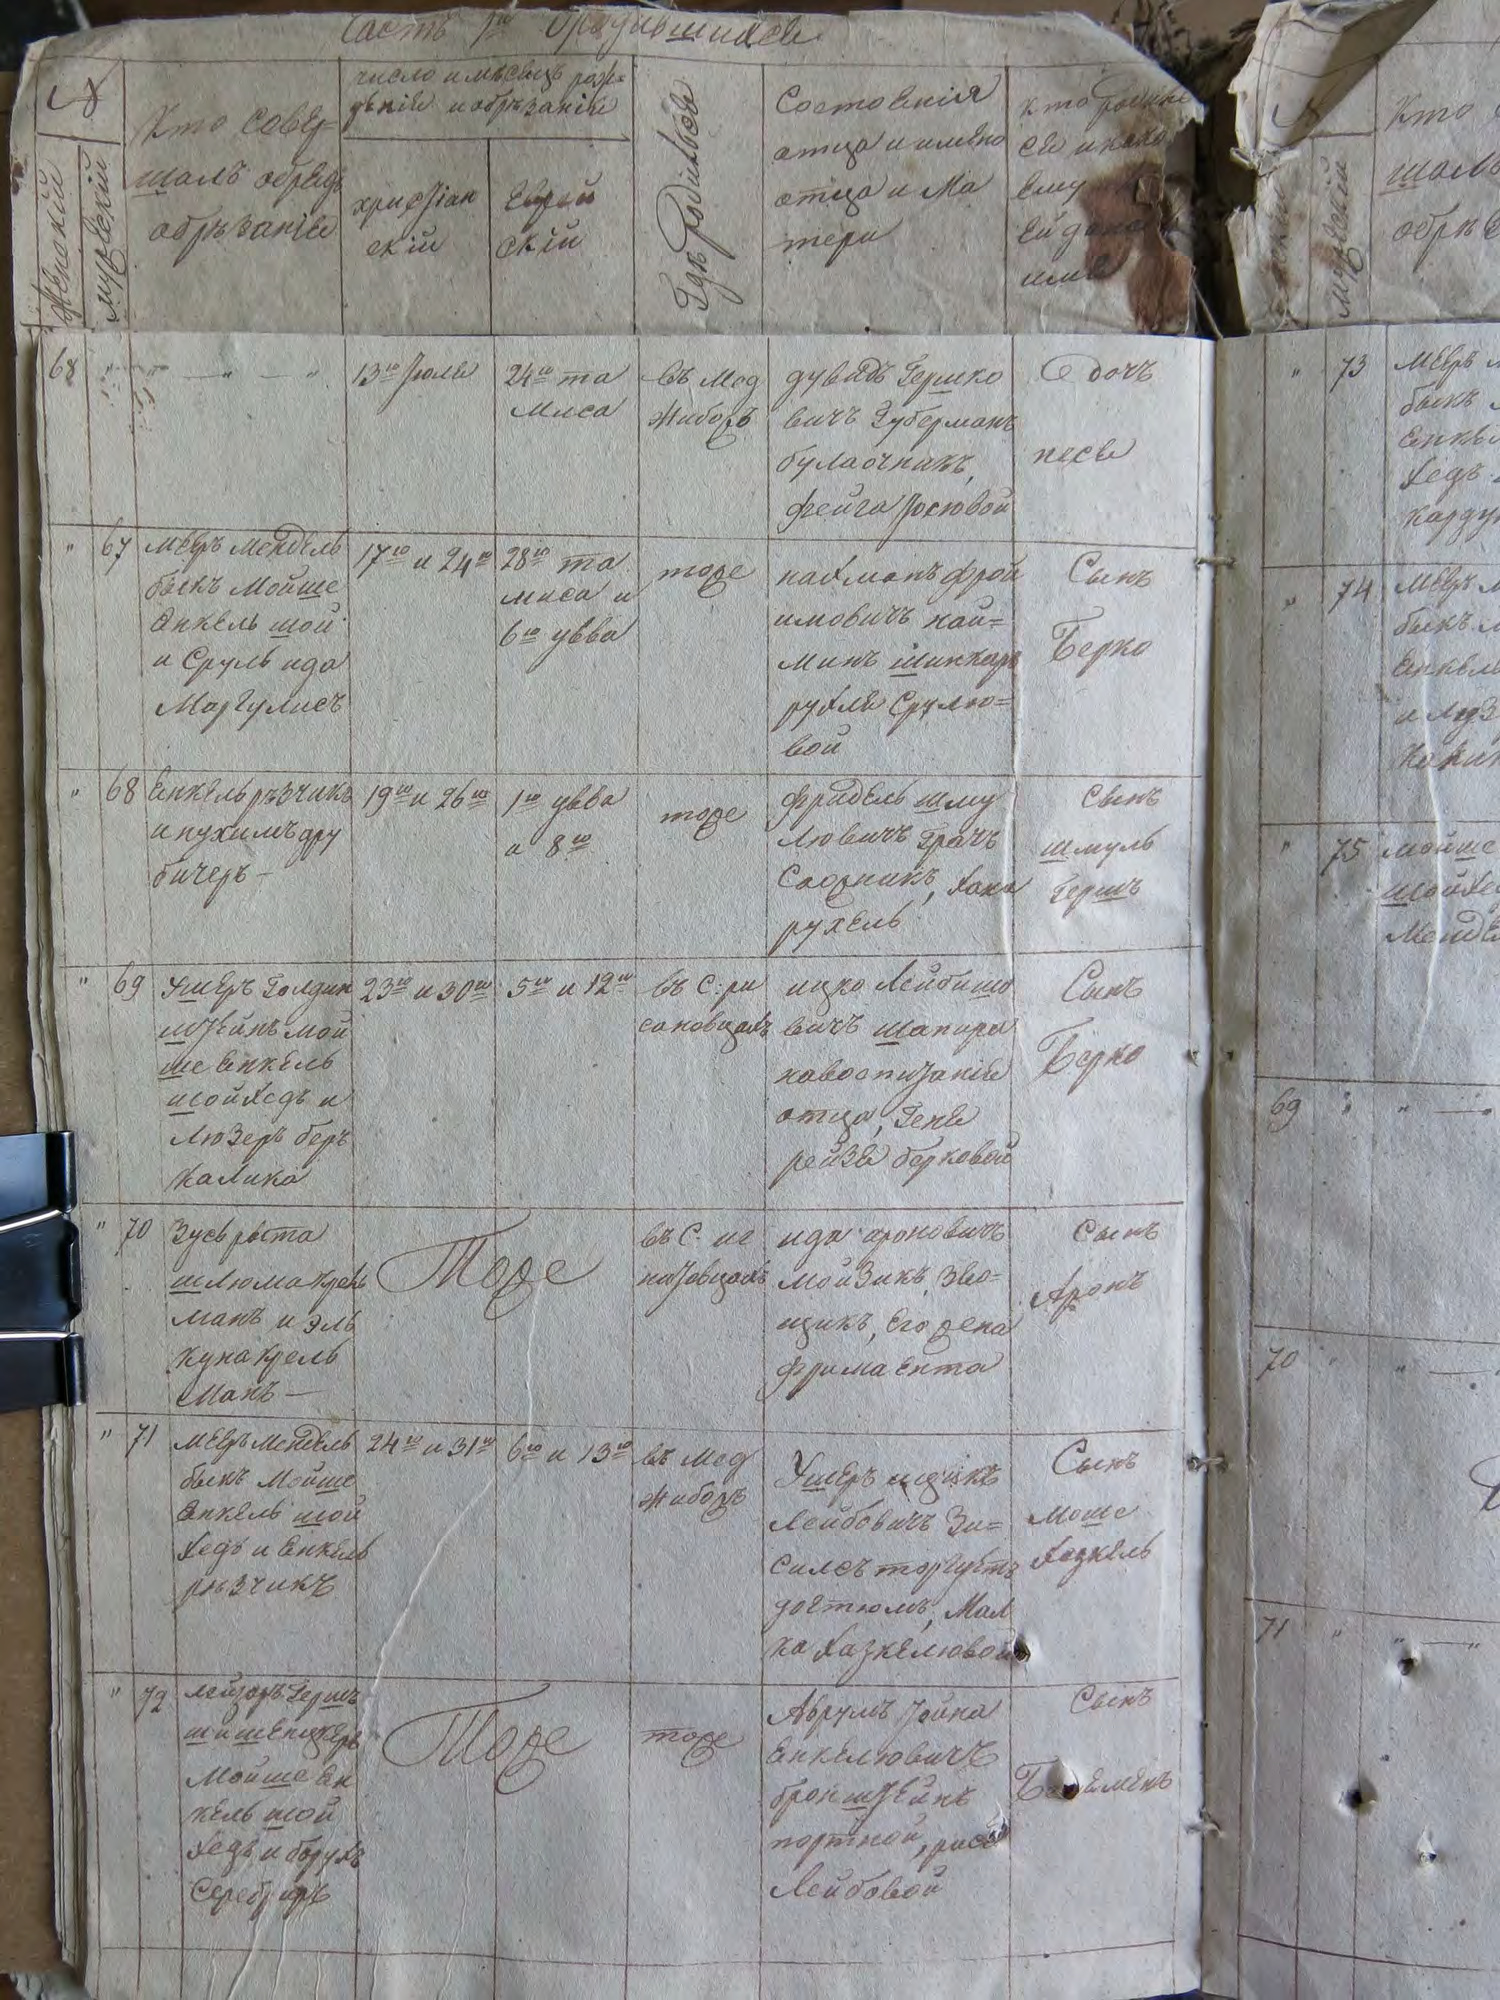 Часть 1я ородившихся
№
Женский
мужеский
Кто совер=
шалъ обрядъ
обрѣзанія
число и мѣсяцъ рож=
дѣнія и обрѣзанія
христіан
скій
Еврей
скій
Гдѣ родился
Состоянія
отца и имяно
отца и Ма
тери
кто родил
ся и како
ему
ей дано
имя
68 " — " — "
13го Июля
24го та
миса
въ Мед
жибожѣ
дувидъ Гершко
вичъ Губерманъ
булочникъ,
фейга Иосювой
Дочь
песя
" 67
Мееръ мендель
быкъ Мойше
Янкель шой
и Сруль ида
Маргулисъ
17го и 24го
28го та
миса и
6го увва
тоже
нахманъ фрои
имовичъ най=
минъ шинкаръ
рухля Срулю=
вой
Сынъ
Берко
" 68
Енкель рѣзчикъ
и нухимъ дру
бичеръ —
19го и 26го
1го увва
и 8го
тоже
фридель шму
лювичъ Грачъ
, хана
рухель
сынъ
шмуль
Гершъ
" 69
Ушеръ Голдин
штейнъ мой
ше Енкель
шойхедъ и
люзеръ беръ
калика
23го и 30го
5го и 12го
въ С: ри
сановцахъ
ицко Лейбишо
вичъ шапира
отца, Геня
рейзя берковой
Сынъ
Берко
" 70
Зусь рыта
шлюма крель
манъ и эль
куна крель
манъ —
Тоже
въ С: иг
натовцахъ
ида ароновичъ
мойзикъ,
щикъ, его жена
фрима ента
Сынъ
Аронъ
" 71
мееръ мендель
быкъ Мойше
Енкель шой
хедъ и Енкель
рѣзчикъ
24го и 31го
6го и 13го
въ Мед
жибожѣ
Ушеръ ицикъ
Лейбовичъ Зи=
силсъ торгуетъ
догтюмъ, Мал
ка хазкелювой
Сынъ
моше
хазкель
" 72
лейзоръ Гершъ
Мойше Ен
кель шой
хедъ и борухъ
Серебряръ
Тоже
тоже
Абрумъ Иойна
Енкелювичъ
бронштейнъ
портной,
Лейбовой
Сынъ
Кто
шалъ
обрѣз
мужеский
" 73
Мееръ м
быкъ
Енкел
хедъ
" 74
Мееръ м
быкъ м
Енкель
" 75
Мойше
шойхед
Мендел
69 " " —
70 " " —
71 " " — "